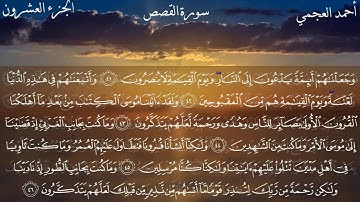 أحمد العجمي سورة القصص الجزء العشرون
وَجَعَلْنَٰهُمْ أَئِمَّةً يَدْعُونَ إِلَى ٱلنَّارِ وَيَوْمَ ٱلْقِيَٰمَةِ لَا يُنصَرُونَ ٤١ وَأَتْبَعْنَٰهُمْ فِى هَٰذِهِ ٱلدُّنْيَا
لَعْنَةً وَيَوْمَ ٱلْقِيَٰمَةِ هُم مِّنَ ٱلْمَقْبُوحِينَ ٤٢ وَلَقَدْ ءَاتَيْنَا مُوسَى ٱلْكِتَٰبَ مِنۢ بَعْدِ مَآ أَهْلَكْنَا
ٱلْقُرُونَ ٱلْأُولَىٰ بَصَآئِرَ لِلنَّاسِ وَهُدًى وَرَحْمَةً لَّعَلَّهُمْ يَتَذَكَّرُونَ ٤٣ وَمَا كُنتَ بِجَانِبِ ٱلْغَرْبِىِّ إِذْ قَضَيْنَآ
إِلَىٰ مُوسَى ٱلْأَمْرَ وَمَا كُنتَ مِنَ ٱلشَّٰهِدِينَ ٤٤ وَلَٰكِنَّآ أَنشَأْنَا قُرُونًا فَتَطَاوَلَ عَلَيْهِمُ ٱلْعُمُرُ وَمَا كُنتَ ثَاوِيًا
فِىٓ أَهْلِ مَدْيَنَ تَتْلُوا۟ عَلَيْهِمْ ءَايَٰتِنَا وَلَٰكِنَّا كُنَّا مُرْسِلِينَ ٤٥ وَمَا كُنتَ بِجَانِبِ ٱلطُّورِ إِذْ نَادَيْنَا
وَلَٰكِن رَّحْمَةً مِّن رَّبِّكَ لِتُنذِرَ قَوْمًا مَّآ أَتَىٰهُم مِّن نَّذِيرٍ مِّن قَبْلِكَ لَعَلَّهُمْ يَتَذَكَّرُونَ ٤٦